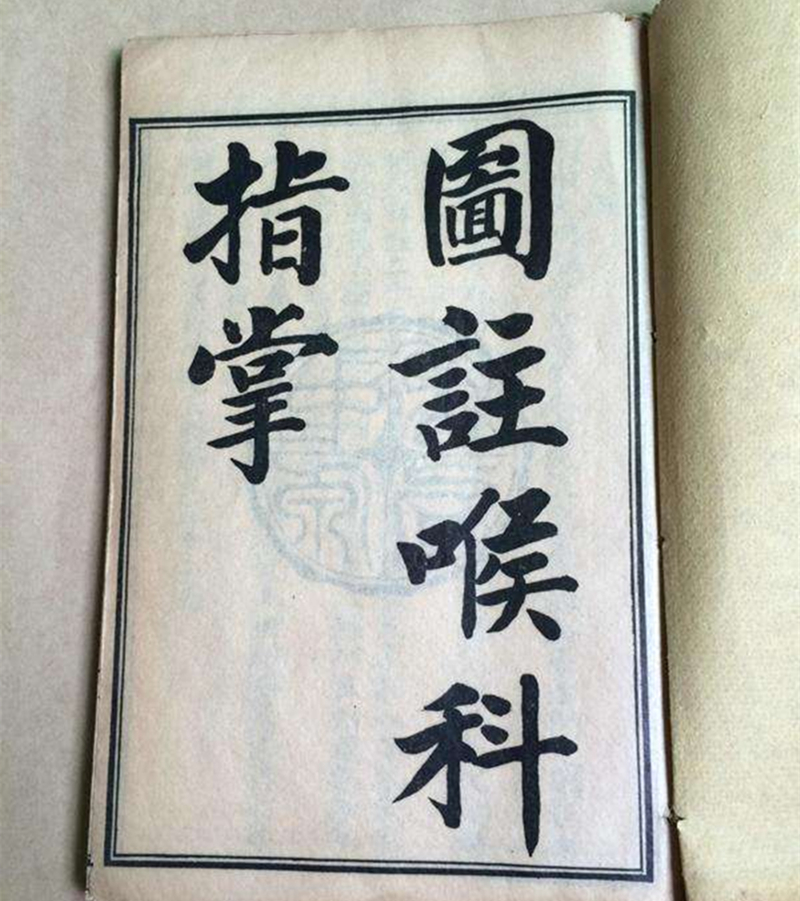 圖註喉科
指掌